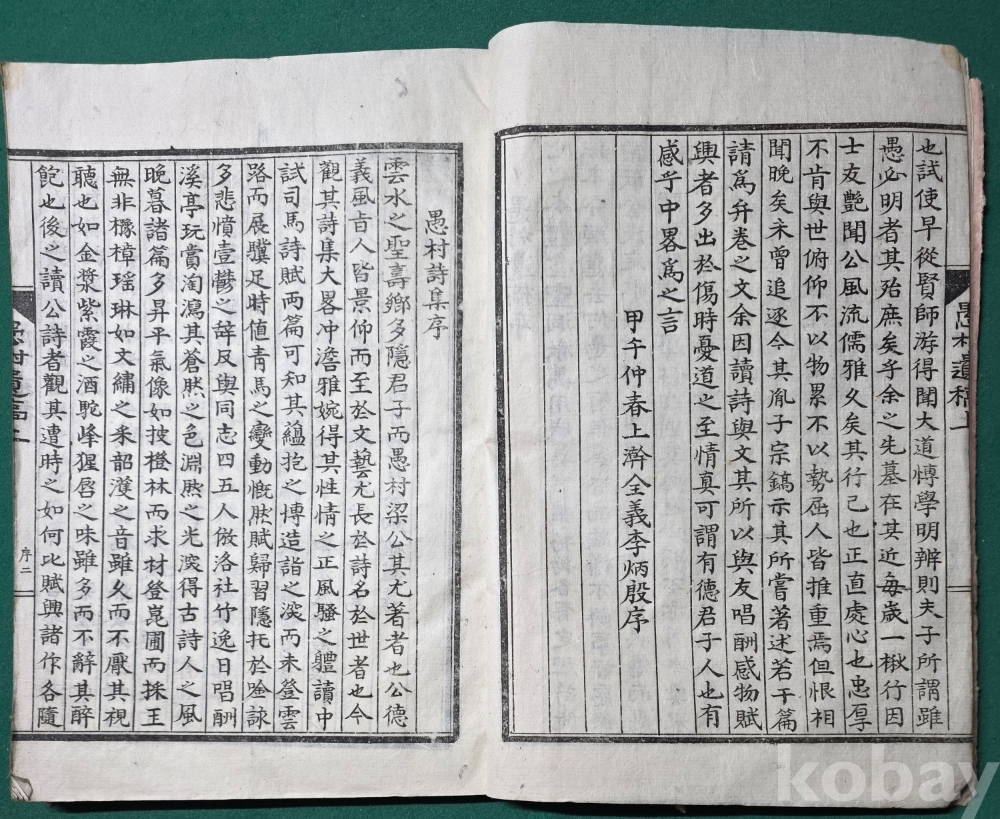 也試使早從賢師游得聞大道愽學明辨則夫子所謂雖
愚必明者其殆庶矣乎余之先墓在其近每歲一楸行因
士友艶聞公風流儒雅久矣其行己也正直處心也忠厚
不肯與世俯仰不以物累不以勢屈人皆推重焉但恨相
聞晩矣未曾追逐今其胤子宗鎬示其所嘗著述若干篇
請爲弁卷之文余因讀詩與文其所以與友唱酬感物賦
興者多出於傷時憂道之至情真可謂有德君子人也有
感乎中畧爲之言
甲午仲春上澣全義李炳殷序
愚村遺稿上
愚村詩集序
雲水之聖壽鄕多隱君子而愚村梁公其尤著者也公德
義風旨人皆景仰而至於文藝尤長於詩名於世者也今
觀其詩集大畧冲澹雅婉得其性情之正風騷之軆讀中
試司馬詩賦兩篇可知其蘊抱之博造詣之深而未登雲
路而展驥足時値青馬之變動慨然賦歸習隱托於唫詠
多悲憤壹鬱之辞反與同志四五人倣洛社竹逸日唱酬
溪亭玩賞淘瀉其蒼然之色淵然之光深得古詩人之風
晩暮諸篇多昇平氣像如披橙林而求材登崑圃而採玉
無非櫲樟瑶琳如文繡之采韶濩之音雖久而不厭其視
聽也如金漿紫霞之酒駝峰猩唇之味雖多而不辭其醉
飽也後之讀公詩者觀其遭時之如何比賦興諸作各隨
愚村遺稿上
序二
kobay